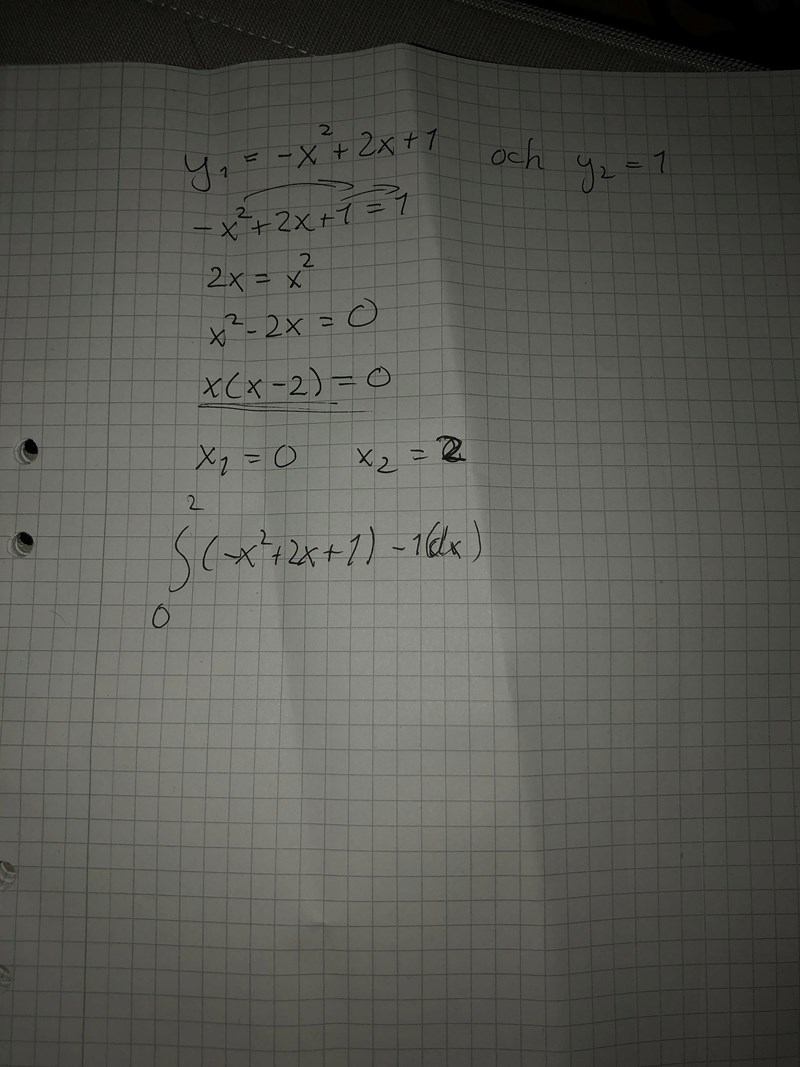 y₁ = -x² + 2x + 1 och y₂ = 1
-x² + 2x + 1 = 1
2x = x²
x² - 2x = 0
x(x - 2) = 0
x₁ = 0 x₂ = 2
∫₀² (-x² + 2x + 1) - 1(dx)